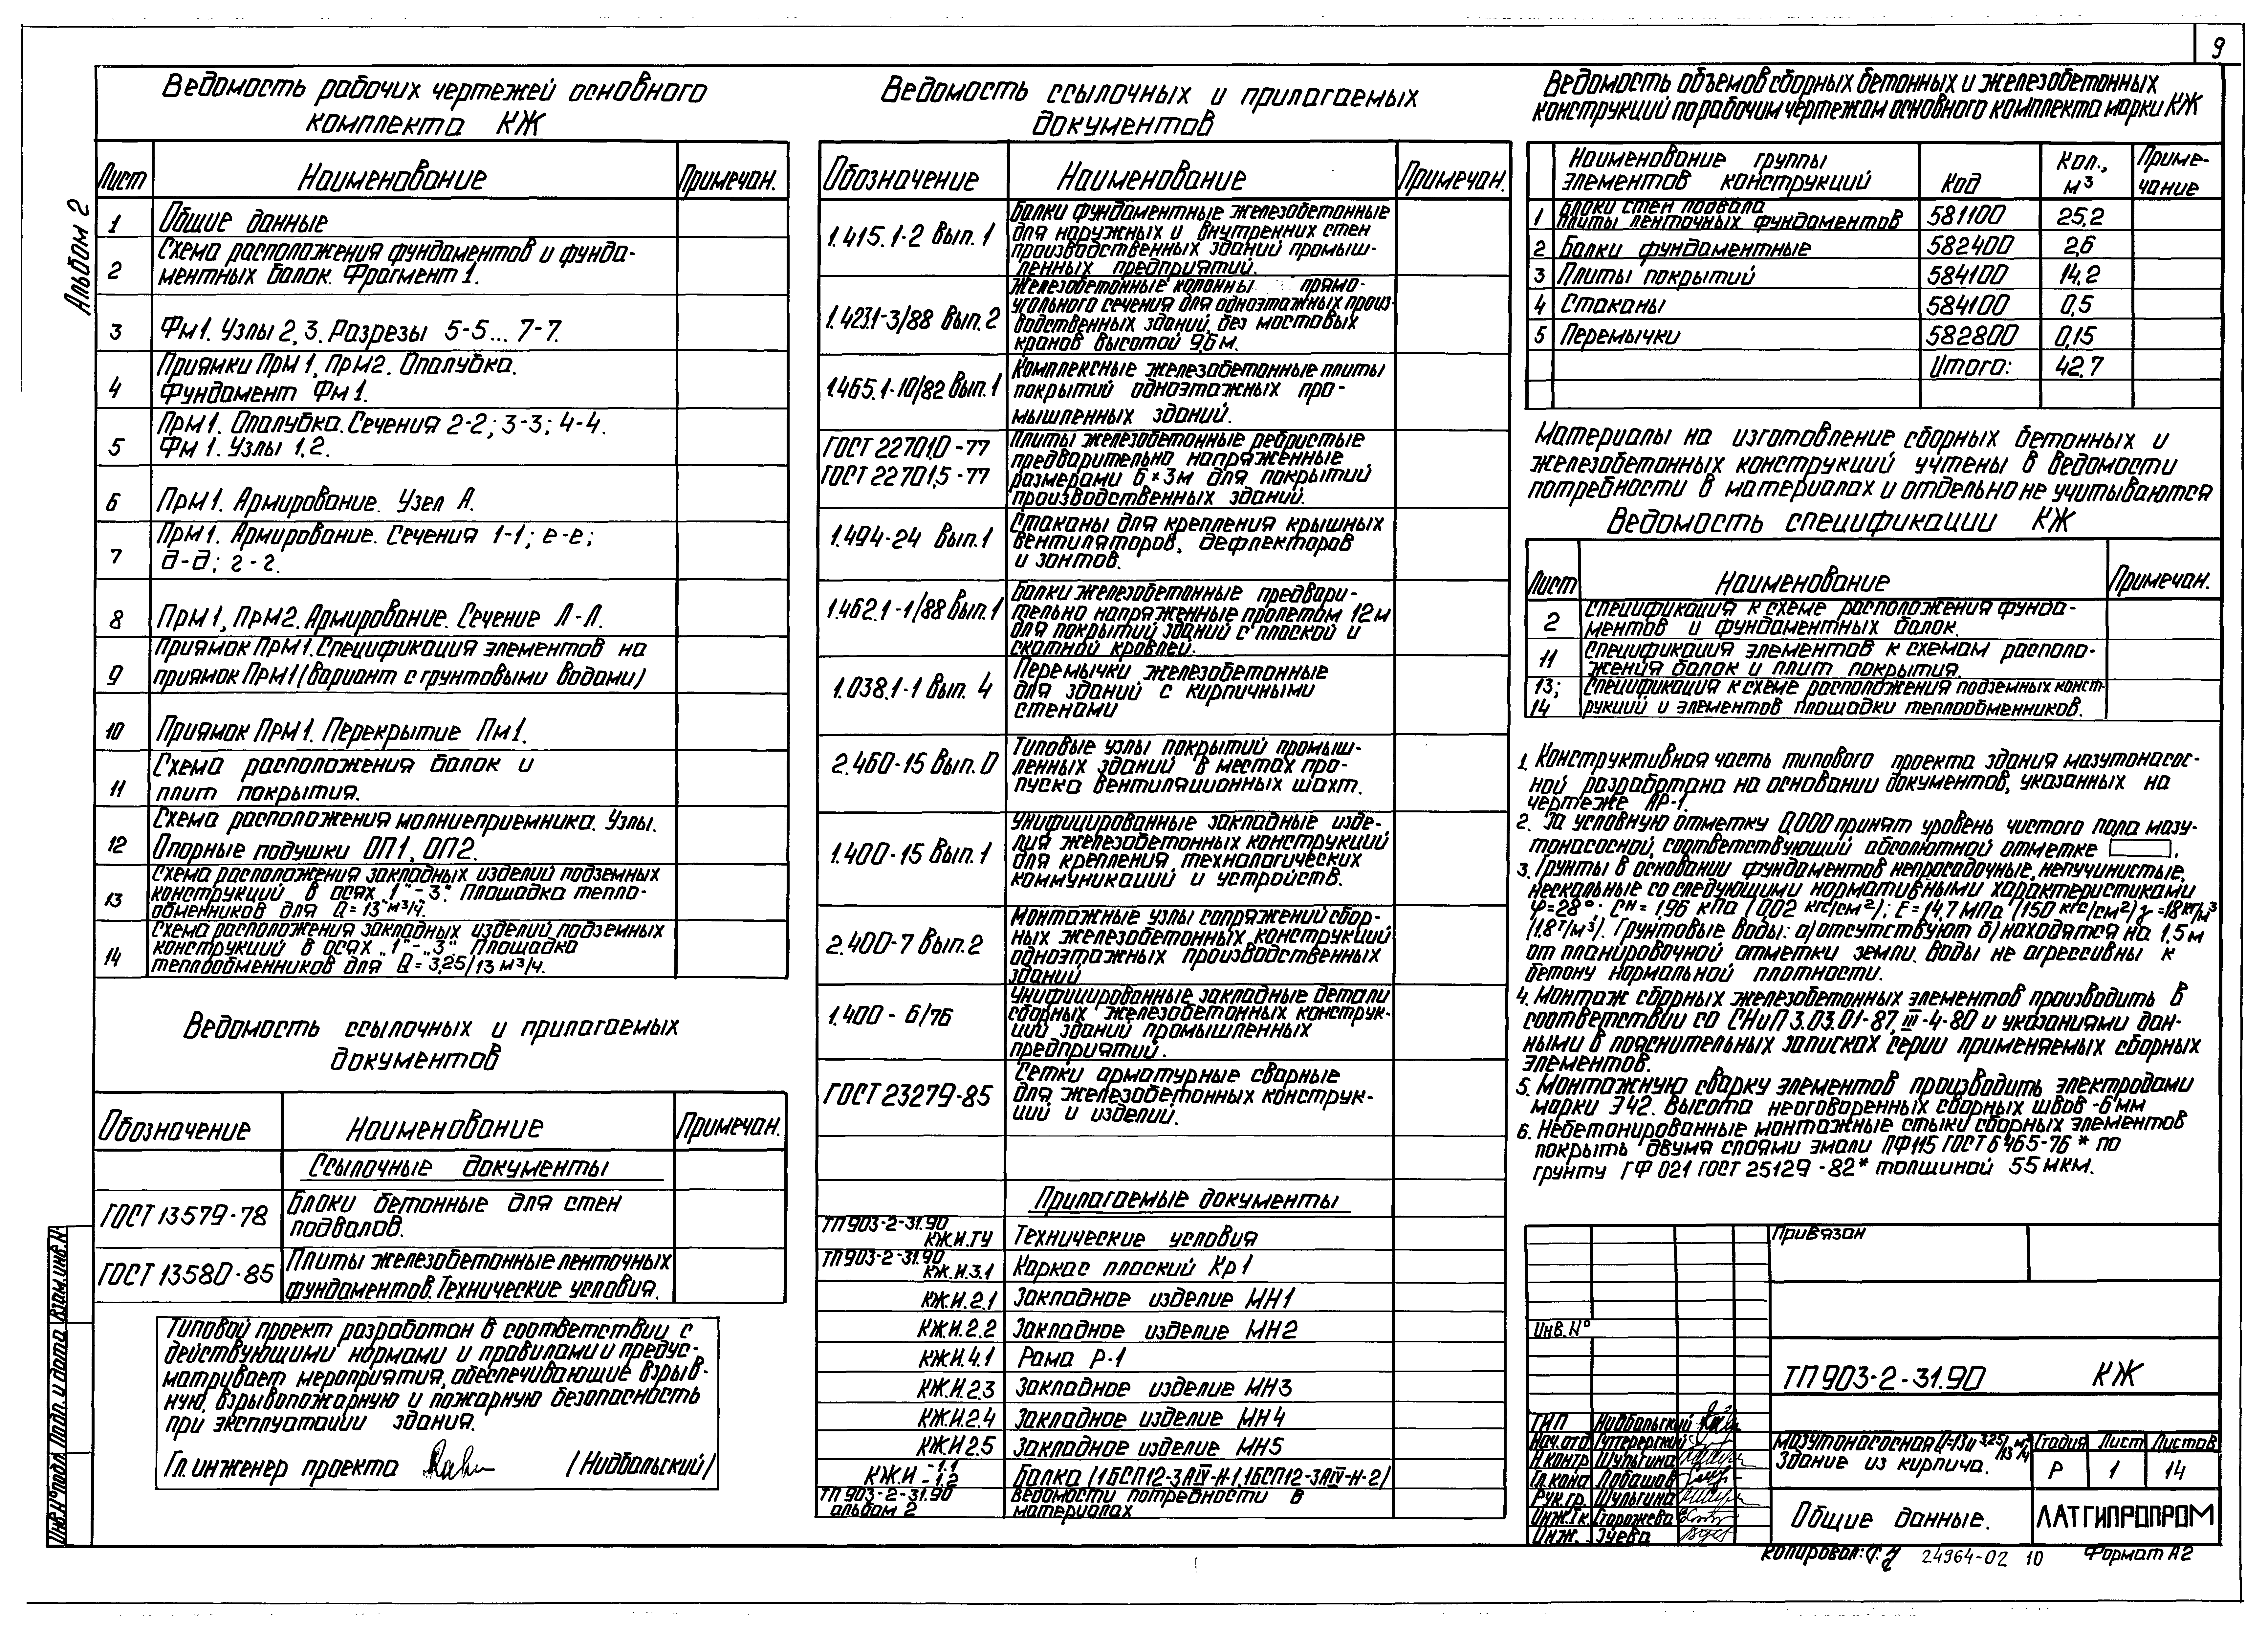 9
Альбом 2
Ведомость рабочих чертежей основного
комплекта КЖ
Лист Наименование Примечан.
1 Общие данные
2 Схема расположения фундаментов и фунда-
ментных балок. Фрагмент 1.
3 Фм1. Узлы 2, 3. Разрезы 5-5... 7-7.
4 Приямки ПрМ1, ПрМ2. Опалубка.
Фундамент Фм1.
5 ПрМ1. Опалубка. Сечения 2-2; 3-3; 4-4.
Фм1. Узлы 1,2.
6 ПрМ1. Армирование. Узел А.
7 ПрМ1. Армирование. Сечения 1-1; е-е;
д-д; г-г.
8 ПрМ1, ПрМ2. Армирование. Сечение Л-Л.
9 Приямок ПрМ1. Спецификация элементов на
приямок ПрМ1 (вариант с грунтовыми водами)
10 Приямок ПрМ1. Перекрытие Пм1.
11 Схема расположения балок и
плит покрытия.
12 Схема расположения молниеприемника. Узлы.
Опорные подушки ОП1, ОП2.
13 Схема расположения закладных изделий подземных
конструкций в осях „1"-„3". Площадка тепло-
обменников для Q=13 м³/ч.
14 Схема расположения закладных изделий подземных
конструкций в осях „1"-„3" Площадка
теплообменников для Q=3,25/13 м³/ч.
Ведомость ссылочных и прилагаемых
документов
Обозначение Наименование Примечан.
Ссылочные документы
ГОСТ 13579-78 Блоки бетонные для стен
подвалов.
ГОСТ 13580-85 Плиты железобетонные ленточных
фундаментов. Технические условия.
Типовой проект разработан в соответствии с
действующими нормами и правилами и предус-
матривает мероприятия, обеспечивающие взрыв-
ную, взрывопожарную и пожарную безопасность
при эксплуатации здания.
Гл. инженер проекта /Нидбальский/
Инв.№ подл. Подп. и дата Взам.инв.№
Ведомость ссылочных и прилагаемых
документов
Обозначение Наименование Примечан.
1.415.1-2 Вып. 1 Балки фундаментные железобетонные
для наружных и внутренних стен
производственных зданий промыш-
ленных предприятий.
1.423.1-3/88 Вып. 2 Железобетонные колонны прямо-
угольного сечения для одноэтажных произ-
водственных зданий без мостовых
кранов высотой 9,6 м.
1.465.1-10/82 Вып. 1 Комплексные железобетонные плиты
покрытий одноэтажных про-
мышленных зданий.
ГОСТ 22701.0-77 Плиты железобетонные ребристые
предварительно напряженные
ГОСТ 22701.5-77 размерами 6×3м для покрытий
производственных зданий.
1.494-24 Вып. 1 Стаканы для крепления крышных
вентиляторов, дефлекторов
и зонтов.
1.462.1-1/88 Вып. 1 Балки железобетонные предвари-
тельно напряженные пролетом 12м
для покрытий зданий с плоской и
скатной кровлей.
1.038.1-1 Вып. 4 Перемычки железобетонные
для зданий с кирпичными
стенами
2.460-15 Вып. 0 Типовые узлы покрытий промыш-
ленных зданий в местах про-
пуска вентиляционных шахт.
1.400-15 Вып. 1 Унифицированные закладные изде-
лия железобетонных конструкций
для крепления технологических
коммуникаций и устройств.
2.400-7 Вып. 2 Монтажные узлы сопряжений сбор-
ных железобетонных конструкций
одноэтажных производственных
зданий
1.400-6/76 Унифицированные закладные детали
сборных железобетонных конструк-
ций зданий промышленных
предприятий.
ГОСТ 23279-85 Сетки арматурные сварные
для железобетонных конструк-
ций и изделий.
Прилагаемые документы
ТП 903-2-31.90
КЖ.И.ТУ Технические условия
ТП 903-2-31.90
КЖ.И.3.1 Каркас плоский Кр1
КЖ.И.2.1 Закладное изделие МН1
КЖ.И.2.2 Закладное изделие МН2
КЖ.И.4.1 Рама Р-1
КЖ.И.2.3 Закладное изделие МН3
КЖ.И.2.4 Закладное изделие МН4
КЖ.И.2.5 Закладное изделие МН5
КЖ.И -1.1 -1.2 Балка (1БСП12-3АIV-Н-1, 1БСП12-3АIV-Н-2)
ТП 903-2-31.90 Ведомости потребности в
альбом 2 материалах
Ведомость объемов сборных бетонных и железобетонных
конструкций по рабочим чертежам основного комплекта марки КЖ
Наименование группы
элементов конструкций Код Кол., м³ Приме-
чание
1 Блоки стен подвала
плиты ленточных фундаментов 581100 25,2
2 Балки фундаментные 582400 2,6
3 Плиты покрытий 584100 14,2
4 Стаканы 584100 0,5
5 Перемычки 582800 0,15
Итого: 42,7
Материалы на изготовление сборных бетонных и
железобетонных конструкций учтены в ведомости
потребности в материалах и отдельно не учитываются
Ведомость спецификации КЖ
Лист Наименование Примечан.
2 Спецификация к схеме расположения фунда-
ментов и фундаментных балок.
11 Спецификация элементов к схемам располо-
жения балок и плит покрытия.
13; Спецификация к схеме расположения подземных конст-
14 рукций и элементов площадки теплообменников.
1. Конструктивная часть типового проекта здания мазутонасос-
ной разработана на основании документов, указанных на
чертеже АР-1.
2. За условную отметку 0,000 принят уровень чистого пола мазу-
тонасосной, соответствующий абсолютной отметке .
3. Грунты в основании фундаментов непросадочные, непучинистые,
нескальные со следующими нормативными характеристиками
φ=28°; Сн= 1,96 кПа (0,02 кгс/см²); Е=14,7 МПа (150 кгс/см²) γ=18 кг/м³
(1,8 т/м³). Грунтовые воды: а) отсутствуют б) находятся на 1,5 м
от планировочной отметки земли. Воды не агрессивны к
бетону нормальной плотности.
4. Монтаж сборных железобетонных элементов производить в
соответствии со СНиП 3.03.01-87, III-4-80 и указаниями дан-
ными в пояснительных записках серии применяемых сборных
элементов.
5. Монтажную сварку элементов производить электродами
марки Э42. Высота неоговоренных сборных швов -6 мм
6. Небетонированные монтажные стыки сборных элементов
покрыть двумя слоями эмали ПФ115 ГОСТ 6465-76* по
грунту ГФ 021 ГОСТ 25129-82* толщиной 55 мкм.
Привязан
Инв.№
ТП 903-2-31.90 КЖ
ГИП Нидбальский
Нач.отд Гуттерергский
Н.контр Шульгина
Гл.конст Лобашов
Рук.гр. Шульгина
Инж.Iк. Сторожева
Инж. Зуева
Мазутонасосная Q=13 и 3,25/13 м³/ч
Здание из кирпича.
Стадия Лист Листов
Р 1 14
Общие данные.
ЛАТГИПРОПРОМ
Копировал: 24964-02 10 Формат А2